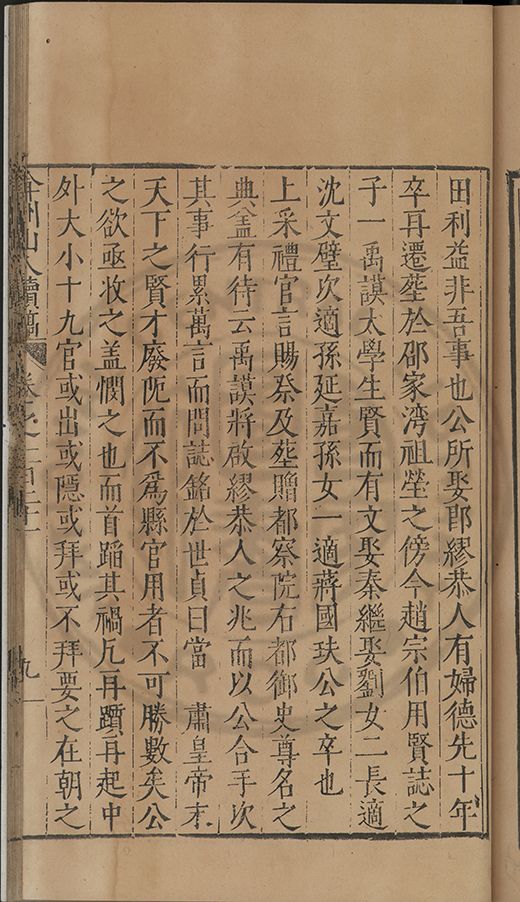 田利益非吾事也公所娶即繆恭人有婦德先十年
卒再遷塟於邵家湾祖塋之傍今趙宗伯用賢誌之
子一禹謨太學生賢而有文娶秦繼娶劉女二長適
沈文璧次適孫延嘉孫女一適蔣國玞公之卒也
上采禮官言賜祭及塟贈都察院右都御史尊名之
典盖有待云禹謨將啟繆恭人之兆而以公合手次
其事行累萬言而問誌銘於世貞曰當　肅皇帝末
天下之賢才廢阨而不爲縣官用者不可勝數矣公
之欲亟收之盖憫之也而首蹈其禍凢再躓再起中
外大小十九官或出或隱或拜或不拜要之在朝之
弇州山人續稿　卷之一百二十一　九